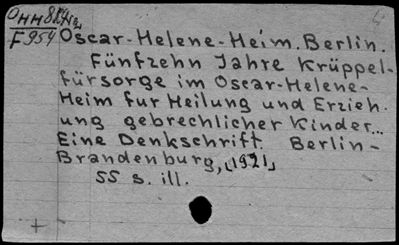 Oscar-Helene-Heim. Berlin.
F954
Fünfzehn Jahre Krüppel-
fürsorge im Oscar-Helene-
Heim fur Heilung und Erzieh.
ung gebrechlicher Kinder...
Eine Denkschrift. Berlin-
Brandenburg, [1921]
55 s. ill.